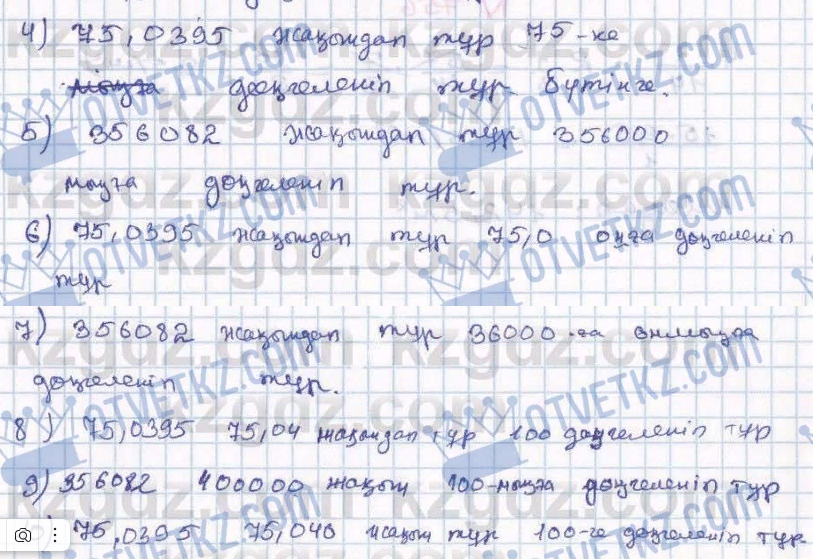 4) 75,0395 жақындап тұр 75-ке
мыңға дөңгеленіп тұр бүтінге.
5) 356082 жақындап тұр 356000
мыңға дөңгеленіп тұр.
6) 75,0395 жақындап тұр 75,0 онға дөңгеленіп
тұр
7) 356082 жақындап тұр 36000-ға онмыңға
дөңгеленіп тұр.
8) 75,0395 75,04 жақындап тұр 100 дөңгеленіп тұр
9) 356082 400000 жақын 100-мыңға дөңгеленіп тұр
75,0395 75,040 жақын тұр 100-ге дөңгеленіп тұр
kzgdz.com
OTVETKZ.COM